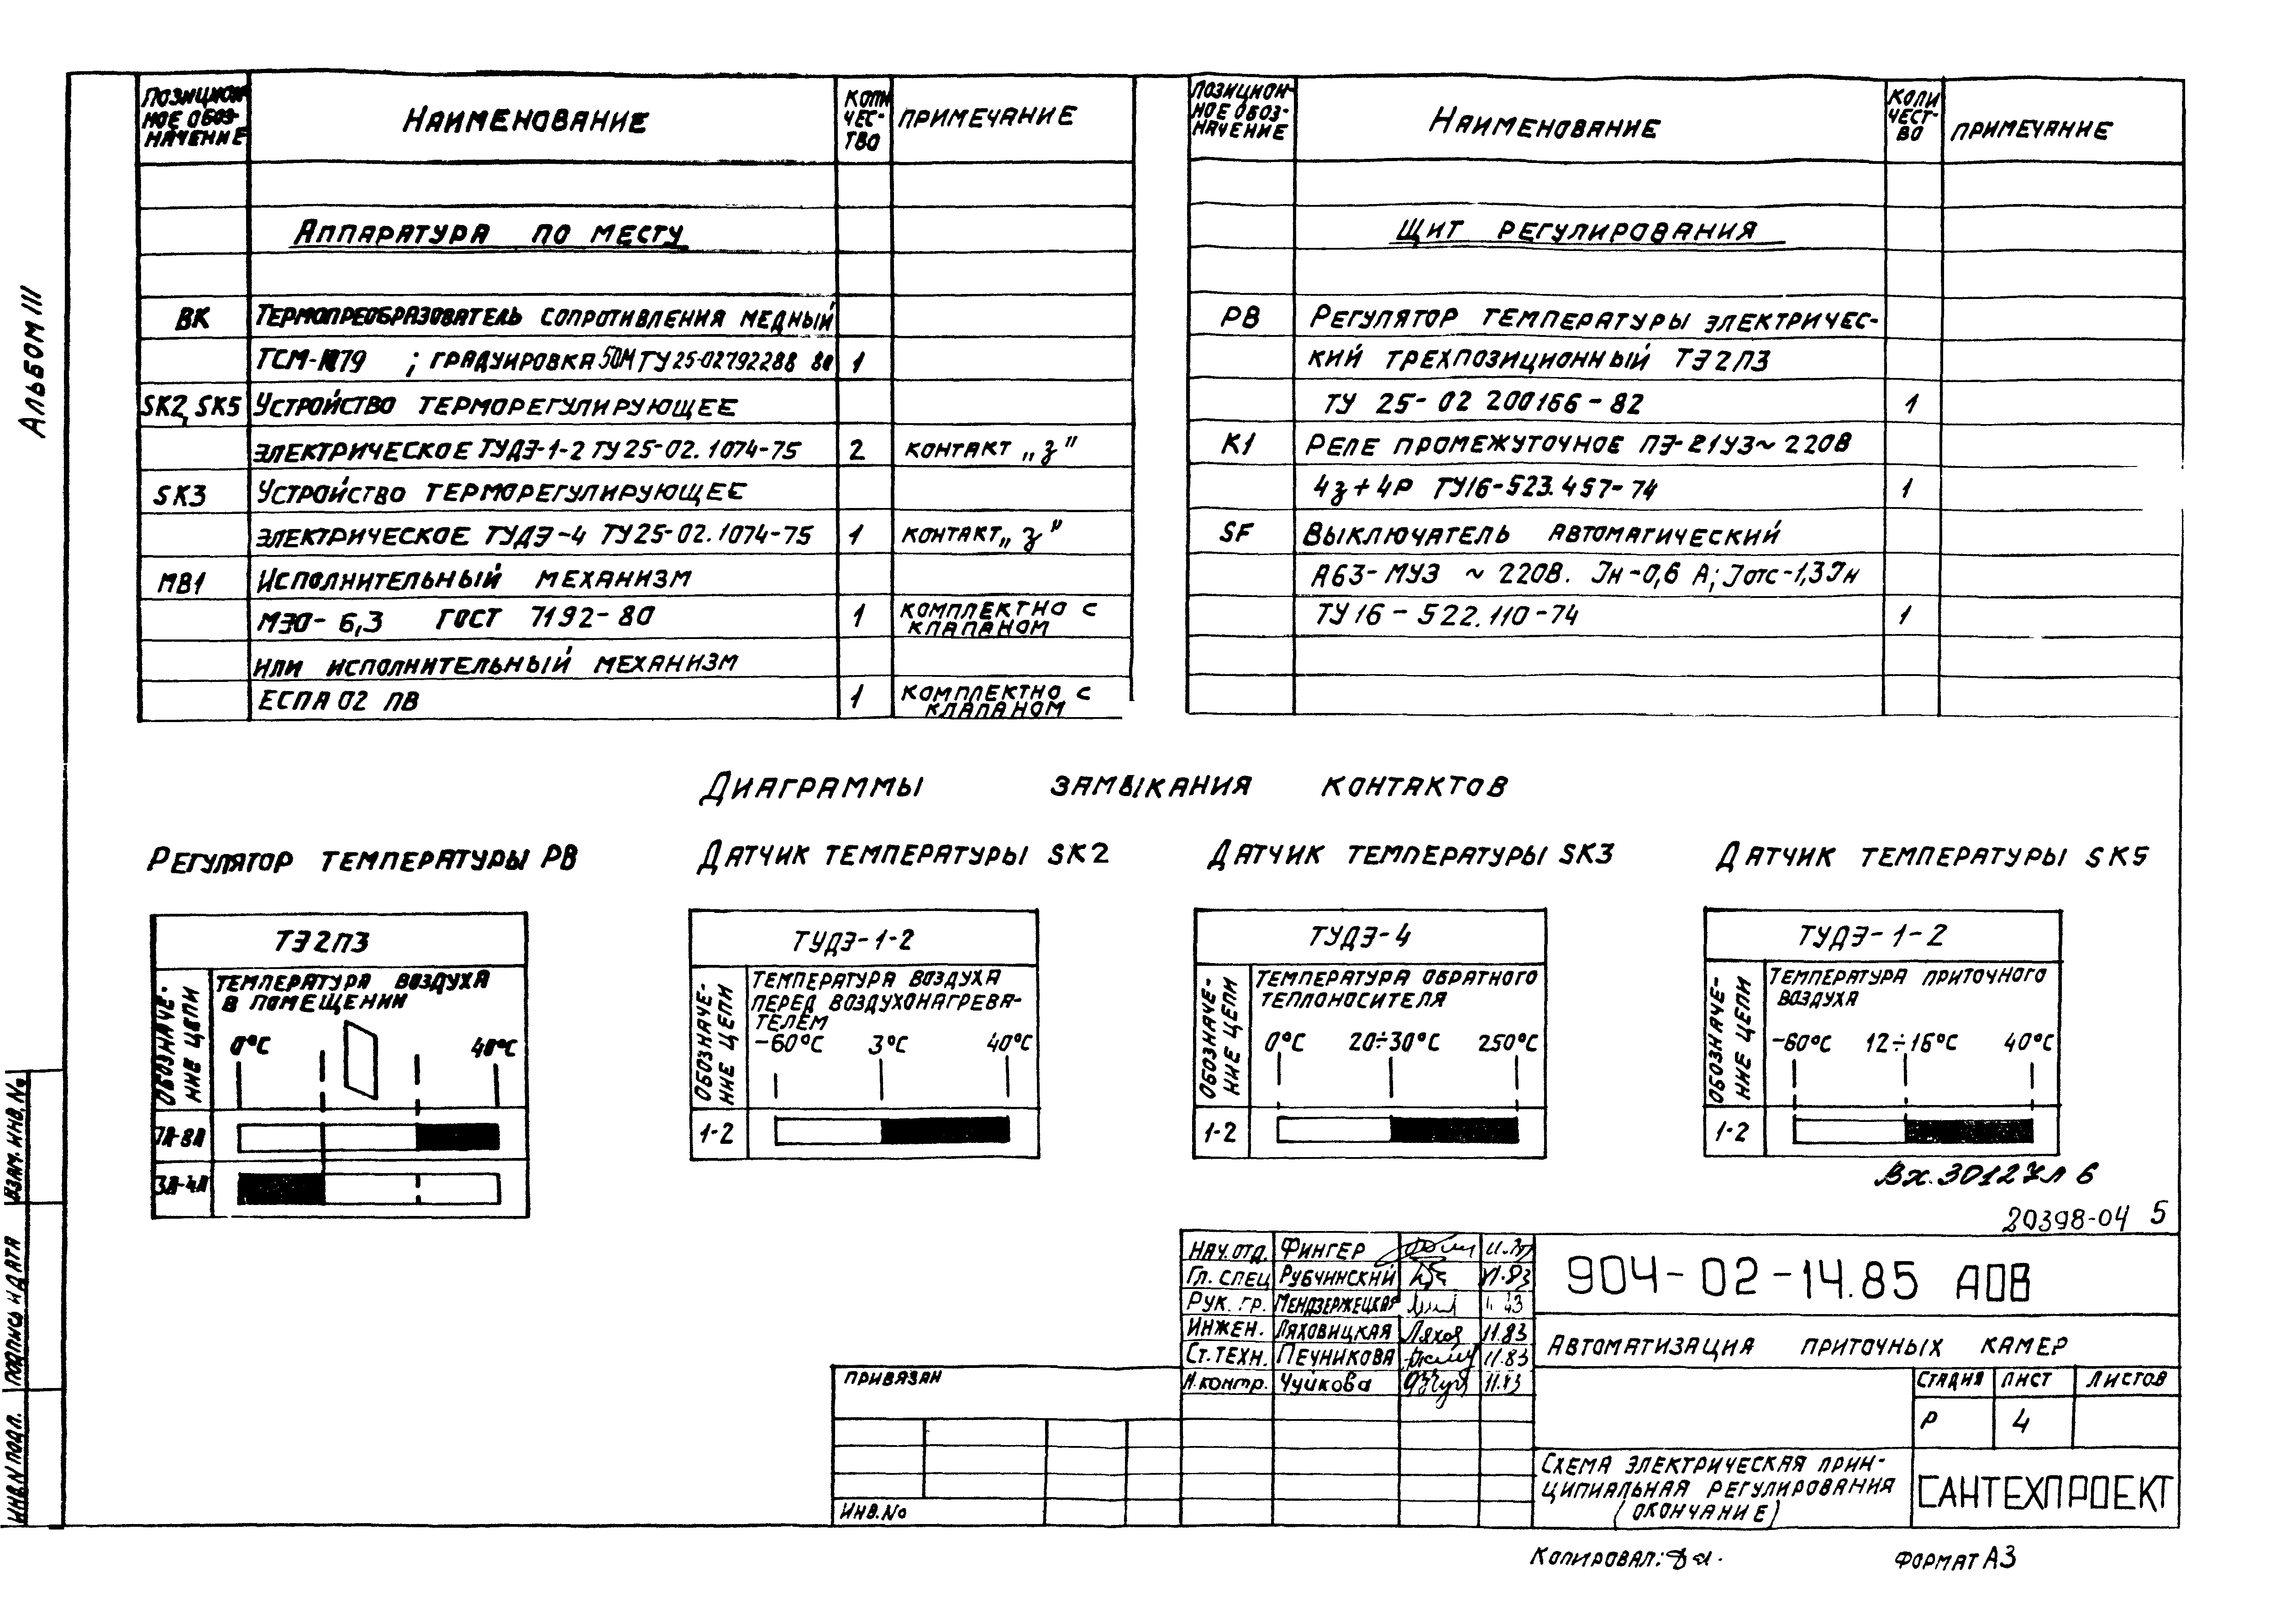 Альбом III
Позицион-
ное обоз-
начение
Наименование
Коли
чес-
тво
Примечание
Аппаратура по месту
ВК Термопреобразователь сопротивления медный
; градуировка 50М ТУ 25-02792288 80 1
SK2, SK5 Устройство терморегулирующее
электрическое ТУДЭ-1-2 ТУ 25-02.1074-75 2 контакт „з"
SK3 Устройство терморегулирующее
электрическое ТУДЭ-4 ТУ 25-02.1074-75 1 контакт „з"
МВ1 Исполнительный механизм
МЭО-6,3 ГОСТ 7192-80 1 комплектно с
клапаном
или исполнительный механизм
ЕСПА 02 ПВ 1 комплектно с
клапаном
Позицион-
ное обоз-
начение
Наименование
Коли
чест-
во
Примечание
Щит регулирования
РВ Регулятор температуры электричес-
кий трехпозиционный ТЭ2П3
ТУ 25-02 200166-82 1
К1 Реле промежуточное ПЭ-21У3 ~ 220В
4з+4р ТУ16-523.457-74 1
SF Выключатель автоматический
А63-МУ3 ~ 220В. Iн-0,6 А; Iотс-1,3Iн
ТУ16-522.110-74 1
Диаграммы замыкания контактов
Регулятор температуры РВ
ТЭ2П3
Обозначе-
ние цепи
Температура воздуха
в помещении
0°С 40°С
7А-8А
3А-4А
Датчик температуры SK2
ТУДЭ-1-2
Обозначе-
ние цепи
Температура воздуха
перед воздухонагрева-
телем
-60°С 3°С 40°С
1-2
Датчик температуры SK3
ТУДЭ-4
Обозначе-
ние цепи
Температура обратного
теплоносителя
0°С 20÷30°С 250°С
1-2
Датчик температуры SK5
ТУДЭ-1-2
Обозначе-
ние цепи
Температура приточного
воздуха
-60°С 12÷16°С 40°С
1-2
Вх. 6
20398-04 5
Нач. отд. Фингер
Гл. спец Рубчинский 11.83
Рук. гр. Мендзержецкая
Инжен. Ляховицкая 11.83
Ст. техн. Печникова 11.83
Н. контр. Чуйкова 11.83
904-02-14.85 АОВ
Автоматизация приточных камер
Стадия Лист Листов
Р 4
Схема электрическая прин-
ципиальная регулирования
(окончание)
САНТЕХПРОЕКТ
Привязан
Инв. №
Взам. инв. №
Подпись и дата
Инв. N подл.
Копировал:
Формат А3